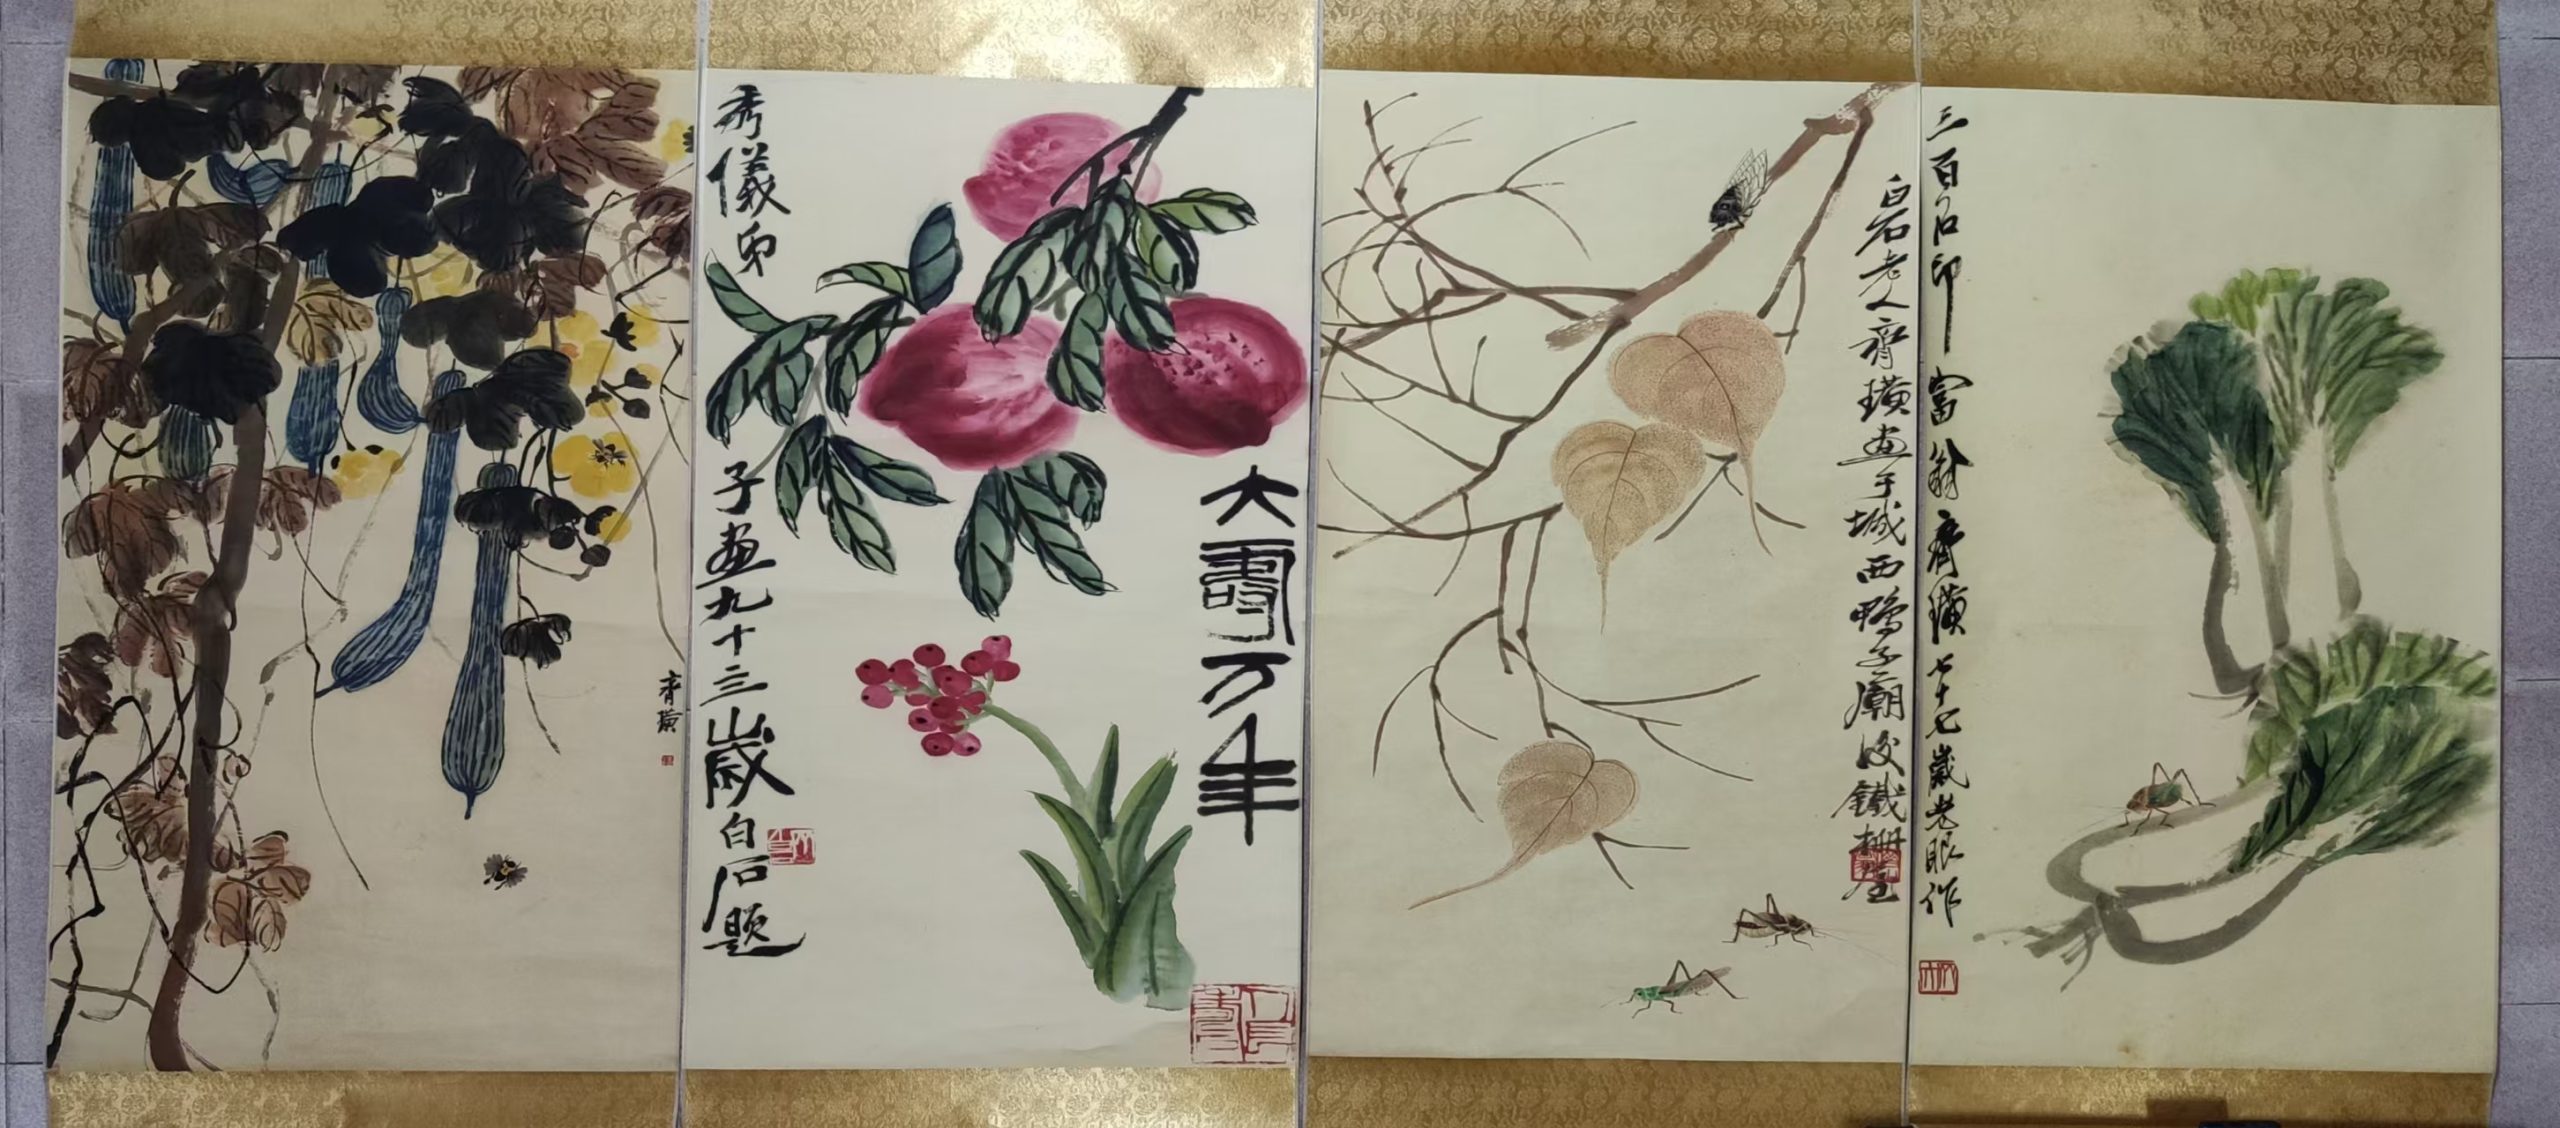 齊璜
大壽万年
秀儀
子畫九十三歲白石題
白石老人齊璜畫于城西鴨子廟後鐵柵屋
三百石印富翁齊璜七十七歲老眼作